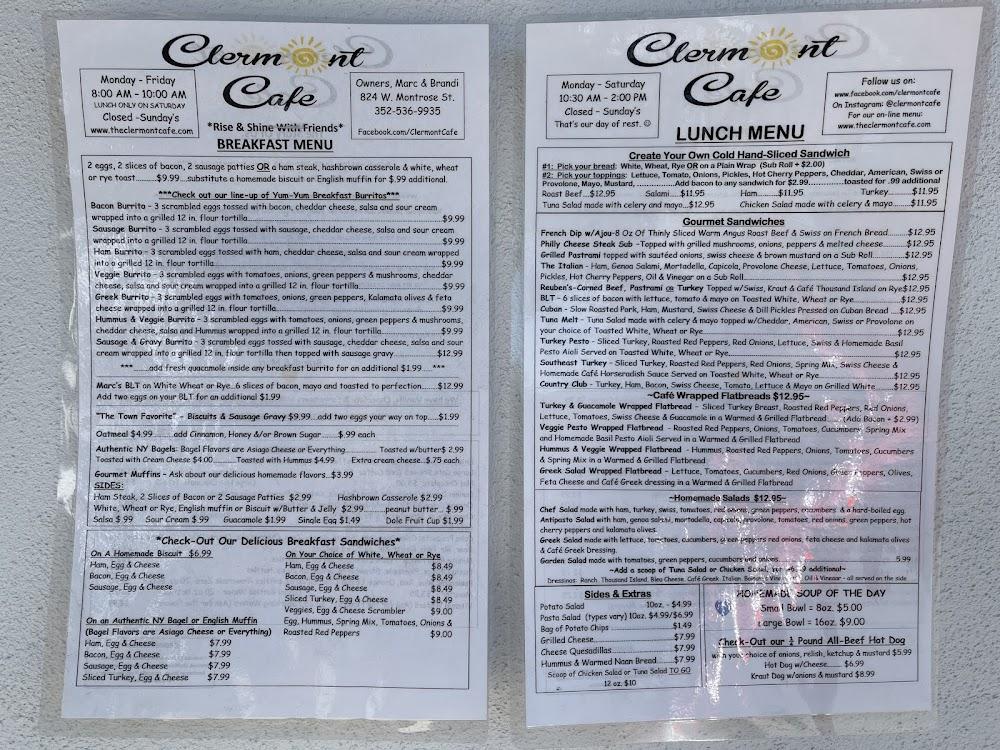 Clermont
Cafe
Monday - Friday
8:00 AM - 10:00 AM
LUNCH ONLY ON SATURDAY
Closed -Sunday's
www.theclermontcafe.com
Owners, Marc & Brandi
824 W. Montrose St.
352-536-9935
Facebook.com/ClermontCafe
*Rise & Shine With Friends*
BREAKFAST MENU
2 eggs, 2 slices of bacon, 2 sausage patties OR a ham steak, hashbrown casserole & white, wheat
or rye toast.......$9.99...substitute a homemade biscuit or English muffin for $.99 additional.
***Check out our line-up of Yum-Yum Breakfast Burritos***
Bacon Burrito - 3 scrambled eggs tossed with bacon, cheddar cheese, salsa and sour cream
wrapped into a grilled 12 in. flour tortilla...$9.99
Sausage Burrito - 3 scrambled eggs tossed with sausage, cheddar cheese, salsa and sour cream
wrapped into a grilled 12 in. flour tortilla...$9.99
Ham Burrito - 3 scrambled eggs tossed with ham, cheddar cheese, salsa and sour cream wrapped
into a grilled 12 in. flour tortilla...$9.99
Veggie Burrito - 3 scrambled eggs with tomatoes, onions, green peppers & mushrooms, cheddar
cheese, salsa and sour cream wrapped into a grilled 12 in. flour tortilla...$9.99
Greek Burrito - 3 scrambled eggs with tomatoes, onions, green peppers, Kalamata olives & feta
cheese wrapped into a grilled 12 in. flour tortilla...$9.99
Hummus & Veggie Burrito - 3 scrambled eggs with tomatoes, onions, green peppers & mushrooms,
cheddar cheese, salsa and Hummus wrapped into a grilled 12 in. flour tortilla...$9.99
Sausage & Gravy Burrito - 3 scrambled eggs tossed with sausage, cheddar cheese, salsa and sour
cream wrapped into a grilled 12 in. flour tortilla then topped with sausage gravy...$12.99
***.......add fresh guacamole inside any breakfast burrito for an additional $1.99....***
Marc's BLT on White Wheat or Rye...6 slices of bacon, mayo and toasted to perfection...$12.99
Add two eggs on your BLT for an additional $1.99
"The Town Favorite" - Biscuits & Sausage Gravy $9.99...add two eggs your way on top.....$1.99
Oatmeal $4.99.......add Cinnamon, Honey &/or Brown Sugar.......$.99 each
Authentic NY Bagels: Bagel Flavors are Asiago Cheese or Everything... Toasted w/butter$ 2.99
Toasted with Cream Cheese $4.00...Toasted with Hummus $4.99 Extra cream cheese..$.75 each
Gourmet Muffins - Ask about our delicious homemade flavors...$3.99
SIDES:
Ham Steak, 2 Slices of Bacon or 2 Sausage Patties $2.99 Hashbrown Casserole $2.99
White, Wheat or Rye, English muffin or Biscuit w/Butter & Jelly $2.99.......peanut butter... $.99
Salsa $.99 Sour Cream $.99 Guacamole $1.99 Single Egg $1.49 Dole Fruit Cup $1.99
*Check-Out Our Delicious Breakfast Sandwiches*
On A Homemade Biscuit $6.99
Ham, Egg & Cheese
Bacon, Egg & Cheese
Sausage, Egg & Cheese
On an Authentic NY Bagel or English Muffin
(Bagel Flavors are Asiago Cheese or Everything)
Ham, Egg & Cheese $7.99
Bacon, Egg & Cheese $7.99
Sausage, Egg & Cheese $7.99
Sliced Turkey, Egg & Cheese $7.99
On Your Choice of White, Wheat or Rye
Ham, Egg & Cheese $8.49
Bacon, Egg & Cheese $8.49
Sausage, Egg & Cheese $8.49
Sliced Turkey, Egg & Cheese $8.49
Veggies, Egg & Cheese Scrambler $9.00
Egg, Hummus, Spring Mix, Tomatoes, Onions &
Roasted Red Peppers $9.00
Clermont
Cafe
Monday - Saturday
10:30 AM - 2:00 PM
Closed - Sunday's
That's our day of rest. ☺
Follow us on:
www.facebook.com/clermontcafe
On Instagram: @clermontcafe
For our on-line menu:
www.theclermontcafe.com
LUNCH MENU
Create Your Own Cold Hand-Sliced Sandwich
#1: Pick your bread: White, Wheat, Rye OR on a Plain Wrap (Sub Roll + $2.00)
#2: Pick your toppings: Lettuce, Tomato, Onions, Pickles, Hot Cherry Peppers, Cheddar, American, Swiss or
Provolone, Mayo, Mustard, ............Add bacon to any sandwich for $2.99............toasted for .99 additional
Roast Beef...$12.95 Salami....$11.95 Ham......$11.95 Turkey..........$11.95
Tuna Salad made with celery and mayo...$12.95 Chicken Salad made with celery & mayo.......$11.95
Gourmet Sandwiches
French Dip w/Ajou-8 Oz Of Thinly Sliced Warm Angus Roast Beef & Swiss on French Bread...$12.95
Philly Cheese Steak Sub -Topped with grilled mushrooms, onions, peppers & melted cheese...$12.95
Grilled Pastrami topped with sautéed onions, swiss cheese & brown mustard on a Sub Roll...$12.95
The Italian - Ham, Genoa Salami, Mortadella, Capicola, Provolone Cheese, Lettuce, Tomatoes, Onions,
Pickles, Hot Cherry Peppers, Oil & Vinegar on a Sub Roll...$12.95
Reuben's-Corned Beef, Pastrami OR Turkey Topped w/Swiss, Kraut & Café Thousand Island on Rye$12.95
BLT - 6 slices of bacon with lettuce, tomato & mayo on Toasted White, Wheat or Rye...$12.95
Cuban - Slow Roasted Pork, Ham, Mustard, Swiss Cheese & Dill Pickles Pressed on Cuban Bread ....$12.95
Tuna Melt - Tuna Salad made with celery & mayo topped w/Cheddar, American, Swiss or Provolone on
your choice of Toasted White, Wheat or Rye...$12.95
Turkey Pesto - Sliced Turkey, Roasted Red Peppers, Red Onions, Lettuce, Swiss & Homemade Basil
Pesto Aioli Served on Toasted White, Wheat or Rye...$12.95
Southeast Turkey - Sliced Turkey, Roasted Red Peppers, Red Onions, Spring Mix, Swiss Cheese &
Homemade Café Horseradish Sauce Served on Toasted White, Wheat or Rye...$12.95
Country Club - Turkey, Ham, Bacon, Swiss Cheese, Tomato, Lettuce & Mayo on Grilled White......$12.95
~Café Wrapped Flatbreads $12.95~
Turkey & Guacamole Wrapped Flatbread - Sliced Turkey Breast, Roasted Red Peppers, Red Onions,
Lettuce, Tomatoes, Swiss Cheese & Guacamole in a Warmed & Grilled Flatbread......(Add Bacon + $2.99)
Veggie Pesto Wrapped Flatbread - Roasted Red Peppers, Onions, Tomatoes, Cucumbers, Spring Mix
and Homemade Basil Pesto Aioli Served in a Warmed & Grilled Flatbread
Hummus & Veggie Wrapped Flatbread - Hummus, Roasted Red Peppers, Onions, Tomatoes, Cucumbers
& Spring Mix in a Warmed & Grilled Flatbread
Greek Salad Wrapped Flatbread - Lettuce, Tomatoes, Cucumbers, Red Onions, Green Peppers, Olives,
Feta Cheese and Café Greek dressing in a Warmed & Grilled Flatbread
~Homemade Salads $12.95~
Chef Salad made with ham, turkey, swiss, tomatoes, red onions, green peppers, cucumbers & a hard-boiled egg.
Antipasto Salad with ham, genoa salami, mortadella, capicola, provolone, tomatoes, red onions, green peppers, hot
cherry peppers and kalamata olives.
Greek Salad made with lettuce, tomatoes, cucumbers, green peppers red onions, feta cheese and kalamata olives
& Café Greek Dressing.
Garden Salad made with tomatoes, green peppers, cucumbers and onions...5.99
~Add a scoop of Tuna Salad or Chicken Salad, additional~
Dressings: Ranch, Thousand Island, Bleu Cheese, Café Greek, Italian, Oil & Vinegar - all served on the side
Sides & Extras
Potato Salad 10oz. - $4.99
Pasta Salad (types vary) 10oz. $4.99/$6.99
Bag of Potato Chips ...$1.49
Grilled Cheese...$7.99
Cheese Quesadillas...$7.99
Hummus & Warmed Naan Bread......$7.99
Scoop of Chicken Salad or Tuna Salad TO GO
12 oz. $10
HOMEMADE SOUP OF THE DAY
Small Bowl = 8oz. $5.00
Large Bowl = 16oz. $9.00
Check-Out our ¼ Pound All-Beef Hot Dog
with your choice of onions, relish, ketchup & mustard $5.99
Hot Dog w/Cheese...... $6.99
Kraut Dog w/onions & mustard $8.99